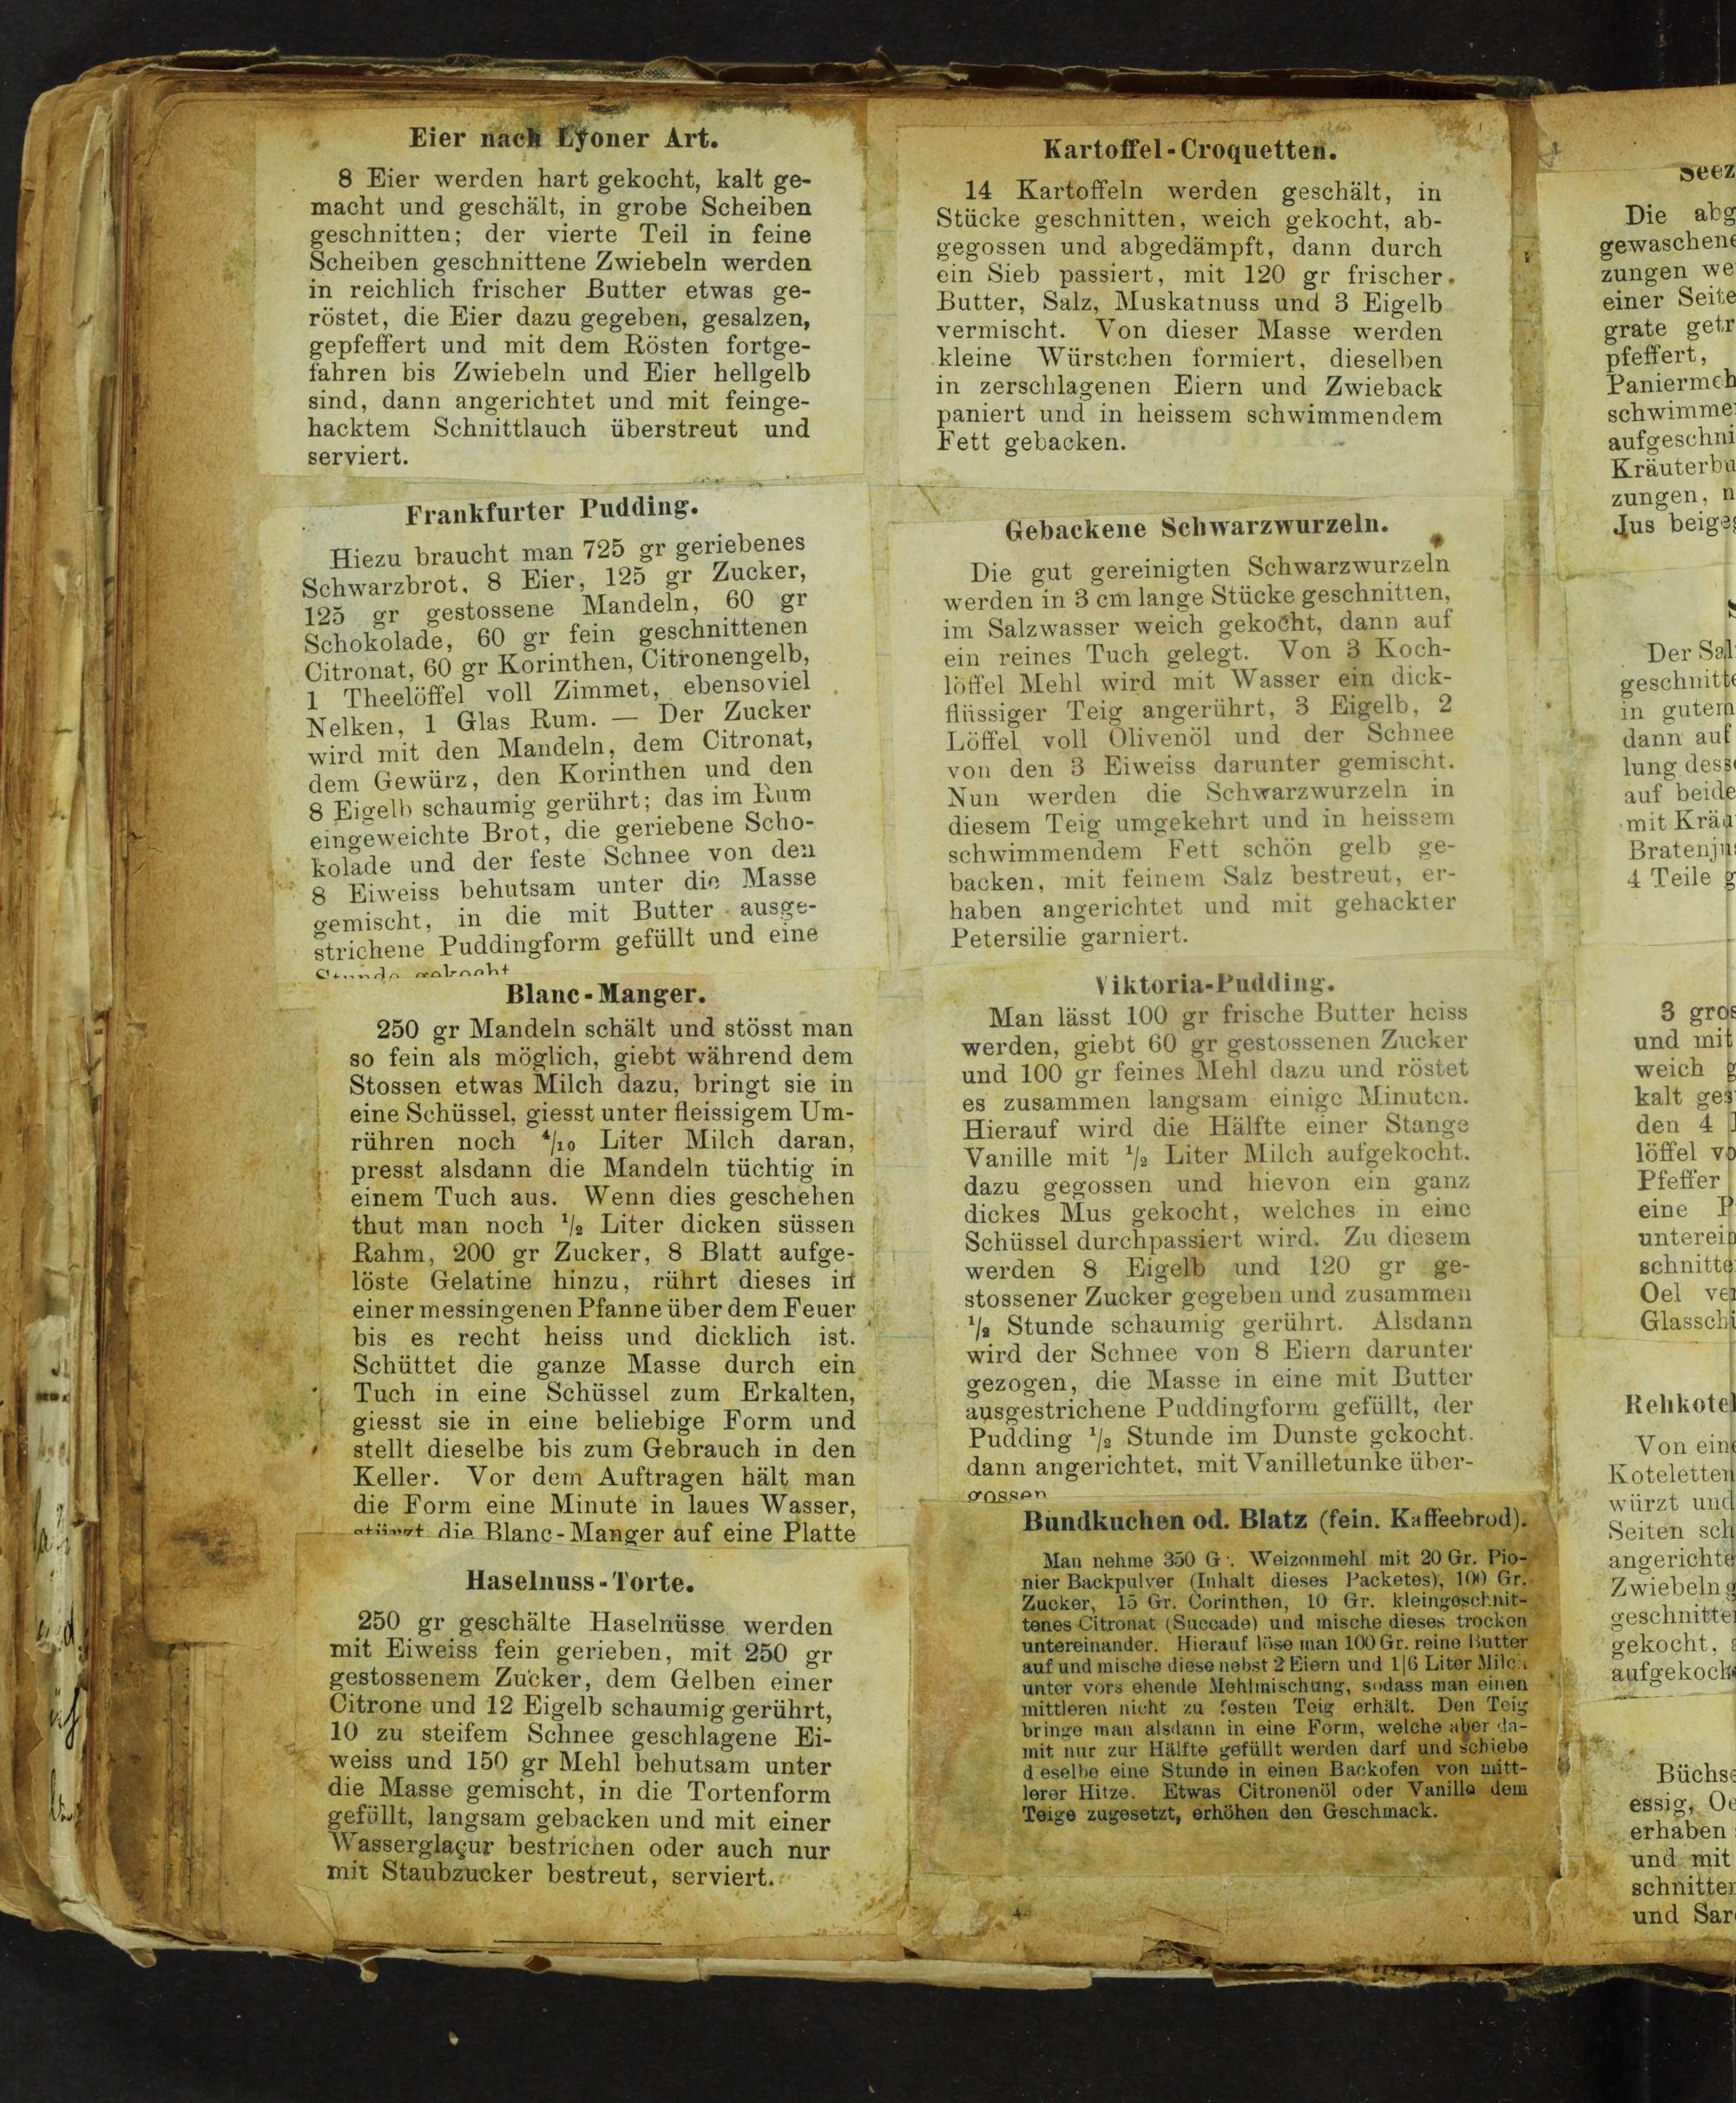 Eier nach Lyoner Art.
8 Eier werden hart gekocht, kalt ge-
macht und geschält, in grobe Scheiben
geschnitten; der vierte Teil in feine
Scheiben geschnittene Zwiebeln werden
in reichlich frischer Butter etwas ge-
röstet, die Eier dazu gegeben, gesalzen,
gepfeffert und mit dem Rösten fortge-
fahren bis Zwiebeln und Eier hellgelb
sind, dann angerichtet und mit feinge-
hacktem Schnittlauch überstreut und
serviert.
Frankfurter Pudding.
Hiezu braucht man 725 gr geriebenes
Schwarzbrot, 8 Eier, 125 gr Zucker,
125 gr gestossene Mandeln, 60 gr
Schokolade, 60 gr fein geschnittenen
Citronat, 60 gr Korinthen, Citronengelb,
1 Theelöffel voll Zimmet, ebensoviel
Nelken, 1 Glas Rum. — Der Zucker
wird mit den Mandeln, dem Citronat,
dem Gewürz, den Korinthen und den
8 Eigelb schaumig gerührt; das im Rum
eingeweichte Brot, die geriebene Scho-
kolade und der feste Schnee von den
8 Eiweiss behutsam unter die Masse
gemischt, in die mit Butter ausge-
strichene Puddingform gefüllt und eine
Stunde gekocht
Blanc-Manger.
250 gr Mandeln schält und stösst man
so fein als möglich, giebt während dem
Stossen etwas Milch dazu, bringt sie in
eine Schüssel, giesst unter fleissigem Um-
rühren noch 4/10 Liter Milch daran,
presst alsdann die Mandeln tüchtig in
einem Tuch aus. Wenn dies geschehen
thut man noch 1/2 Liter dicken süssen
Rahm, 200 gr Zucker, 8 Blatt aufge-
löste Gelatine hinzu, rührt dieses in
einer messingenen Pfanne über dem Feuer
bis es recht heiss und dicklich ist.
Schüttet die ganze Masse durch ein
Tuch in eine Schüssel zum Erkalten,
giesst sie in eine beliebige Form und
stellt dieselbe bis zum Gebrauch in den
Keller. Vor dem Auftragen hält man
die Form eine Minute in laues Wasser,
stürzt die Blanc-Manger auf eine Platte
Haselnuss-Torte.
250 gr geschälte Haselnüsse werden
mit Eiweiss fein gerieben, mit 250 gr
gestossenem Zucker, dem Gelben einer
Citrone und 12 Eigelb schaumig gerührt,
10 zu steifem Schnee geschlagene Ei-
weiss und 150 gr Mehl behutsam unter
die Masse gemischt, in die Tortenform
gefüllt, langsam gebacken und mit einer
Wasserglaçur bestrichen oder auch nur
mit Staubzucker bestreut, serviert.
Kartoffel-Croquetten.
14 Kartoffeln werden geschält, in
Stücke geschnitten, weich gekocht, ab-
gegossen und abgedämpft, dann durch
ein Sieb passiert, mit 120 gr frischer
Butter, Salz, Muskatnuss und 3 Eigelb
vermischt. Von dieser Masse werden
kleine Würstchen formiert, dieselben
in zerschlagenen Eiern und Zwieback
paniert und in heissem schwimmendem
Fett gebacken.
Gebackene Schwarzwurzeln.
Die gut gereinigten Schwarzwurzeln
werden in 3 cm lange Stücke geschnitten,
im Salzwasser weich gekocht, dann auf
ein reines Tuch gelegt. Von 3 Koch-
löffel Mehl wird mit Wasser ein dick-
flüssiger Teig angerührt, 3 Eigelb, 2
Löffel voll Olivenöl und der Schnee
von den 3 Eiweiss darunter gemischt.
Nun werden die Schwarzwurzeln in
diesem Teig umgekehrt und in heissem
schwimmendem Fett schön gelb ge-
backen, mit feinem Salz bestreut, er-
haben angerichtet und mit gehackter
Petersilie garniert.
Viktoria-Pudding.
Man lässt 100 gr frische Butter heiss
werden, giebt 60 gr gestossenen Zucker
und 100 gr feines Mehl dazu und röstet
es zusammen langsam einige Minuten.
Hierauf wird die Hälfte einer Stange
Vanille mit 1/2 Liter Milch aufgekocht.
dazu gegossen und hievon ein ganz
dickes Mus gekocht, welches in eine
Schüssel durchpassiert wird. Zu diesem
werden 8 Eigelb und 120 gr ge-
stossener Zucker gegeben und zusammen
1/2 Stunde schaumig gerührt. Alsdann
wird der Schnee von 8 Eiern darunter
gezogen, die Masse in eine mit Butter
ausgestrichene Puddingform gefüllt, der
Pudding 1/2 Stunde im Dunste gekocht.
dann angerichtet, mit Vanilletunke über-
gossen
Bundkuchen od. Blatz (fein. Kaffeebrod).
Man nehme 350 Gr. Weizenmehl mit 20 Gr. Pio-
nier Backpulver (Inhalt dieses Packetes), 100 Gr.
Zucker, 15 Gr. Corinthen, 10 Gr. kleingeschnit-
tenes Citronat (Succade) und mische dieses trocken
untereinander. Hierauf löse man 100 Gr. reine Butter
auf und mische diese nebst 2 Eiern und 1|6 Liter Milch
unter vorstehende Mehlmischung, sodass man einen
mittleren nicht zu festen Teig erhält. Den Teig
bringe man alsdann in eine Form, welche aber da-
mit nur zur Hälfte gefüllt werden darf und schiebe
dieselbe eine Stunde in einen Backofen von mitt-
lerer Hitze. Etwas Citronenöl oder Vanille dem
Teige zugesetzt, erhöhen den Geschmack.
Seez
Die abg
gewaschene
zungen we
einer Seite
grate getr
pfeffert,
Paniermeh
schwimme
aufgeschni
Kräuterbu
zungen, n
Jus beigeg
Der Sal
geschnitte
in gutem
dann auf
lung dess
auf beide
mit Kräu
Bratenju
4 Teile g
3 gros
und mit
weich g
kalt ges
den 4
löffel vo
Pfeffer
eine P
unterein
schnitte
Oel ver
Glasschü
Rehkotel
Von eine
Koteletten
würzt und
Seiten sch
angerichte
Zwiebeln g
geschnitten
gekocht,
aufgekoch
Büchse
essig, Oe
erhaben
und mit
schnitten
und Sar